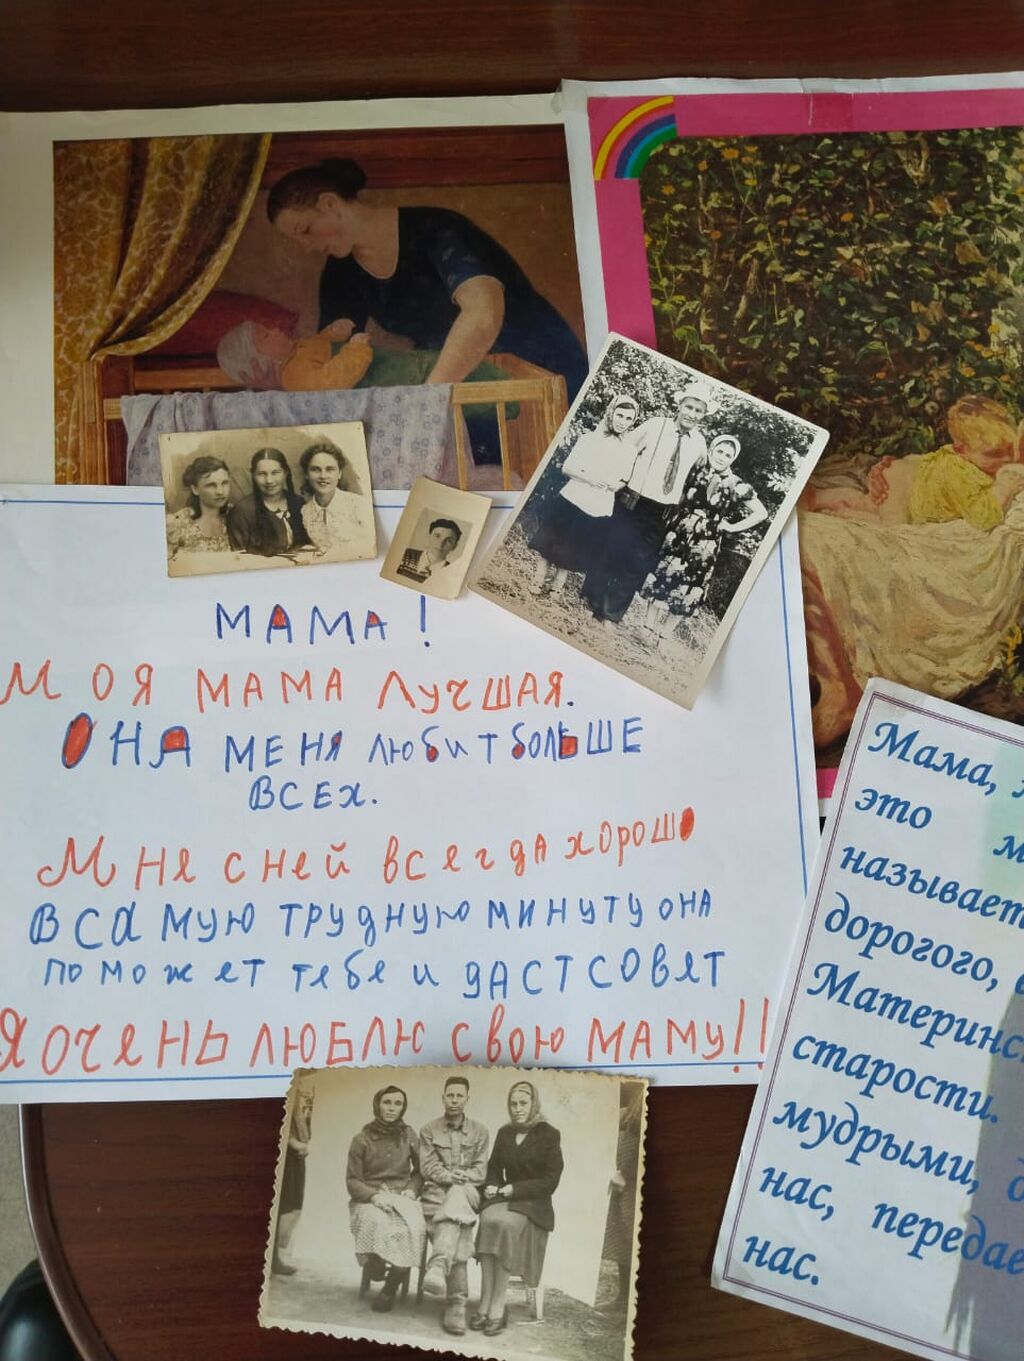 МАМА!
МОЯ МАМА ЛУЧШАЯ.
ОНА МЕНЯ ЛЮБИТ БОЛЬШЕ
ВСЕХ.
Мне с ней всегда хорошо
В САМУЮ ТРУДНУЮ МИНУТУ ОНА
поможет тебе и даст совет
Я ОЧЕНЬ ЛЮБЛЮ СВОЮ МАМУ!!
Мама,
это
называет
дорогого,
Материнс
старости.
мудрыми,
нас, передае
нас.